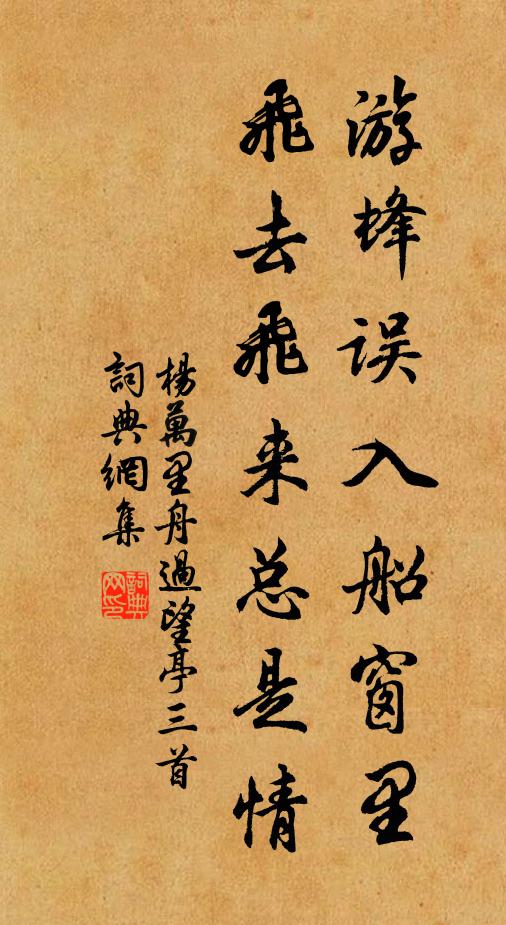 游蜂误入船窗里
飞去飞来总是情
楊萬里舟過望亭三首
詞典網集
詞典网印